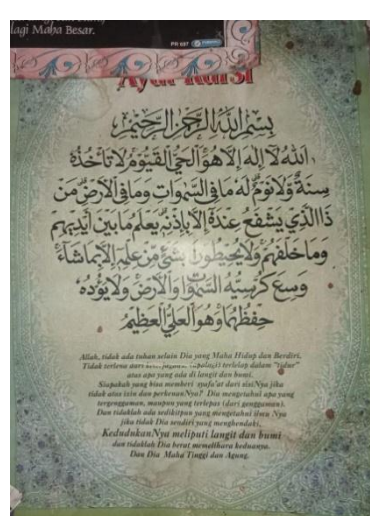 lagi Maha Besar.
PR 697
Ayat Kursi
بِسْمِ اللهِ الرَّحْمٰنِ الرَّحِيْمِ
اَللهُ لَا إِلٰهَ إِلَّا هُوَ الْحَيُّ الْقَيُّوْمُ لَا تَأْخُذُهُ
سِنَةٌ وَّلَا نَوْمٌ لَهُ مَا فِي السَّمٰوَاتِ وَمَا فِي الْأَرْضِ مَنْ
ذَا الَّذِيْ يَشْفَعُ عِنْدَهُ إِلَّا بِإِذْنِهِ يَعْلَمُ مَا بَيْنَ أَيْدِيْهِمْ
وَمَا خَلْفَهُمْ وَلَا يُحِيْطُوْنَ بِشَيْءٍ مِّنْ عِلْمِهِ إِلَّا بِمَا شَاءَ
وَسِعَ كُرْسِيُّهُ السَّمٰوَاتِ وَالْأَرْضَ وَلَا يَئُوْدُهُ
حِفْظُهُمَا وَهُوَ الْعَلِيُّ الْعَظِيْمُ
Allah, tidak ada tuhan selain Dia yang Maha Hidup dan Berdiri.
Tidak terlena dari apalagi terlelap dalam "tidur"
atas apa yang ada di langit dan bumi.
Siapakah yang bisa memberi syafa'at dari sisiNya jika
tidak atas izin dan perkenanNya? Dia mengetahui apa yang
tergenggaman, maupun yang terlepas (dari genggaman).
Dan tidaklah ada sedikitpun yang mengetahui ilmu Nya
jika tidak Dia sendiri yang menghendaki,
KedudukanNya meliputi langit dan bumi
dan tidaklah Dia berat memelihara keduanya.
Dan Dia Maha Tinggi dan Agung.